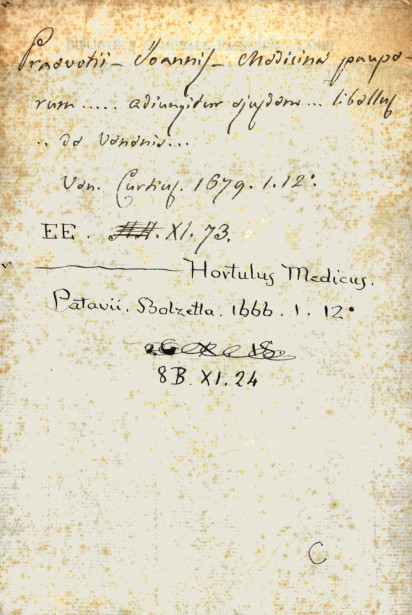 Praevotii – Joannis – Medicina paupe-
rum ..... adiungitur ejusdem ... libellus
.. de venenis ...
Ven. Curtius. 1679. 1. 12°.
EE. XI. 73.
Hortulus Medicus.
Patavii. Bolzetta. 1666. 1. 12°
8B. XI. 24
C